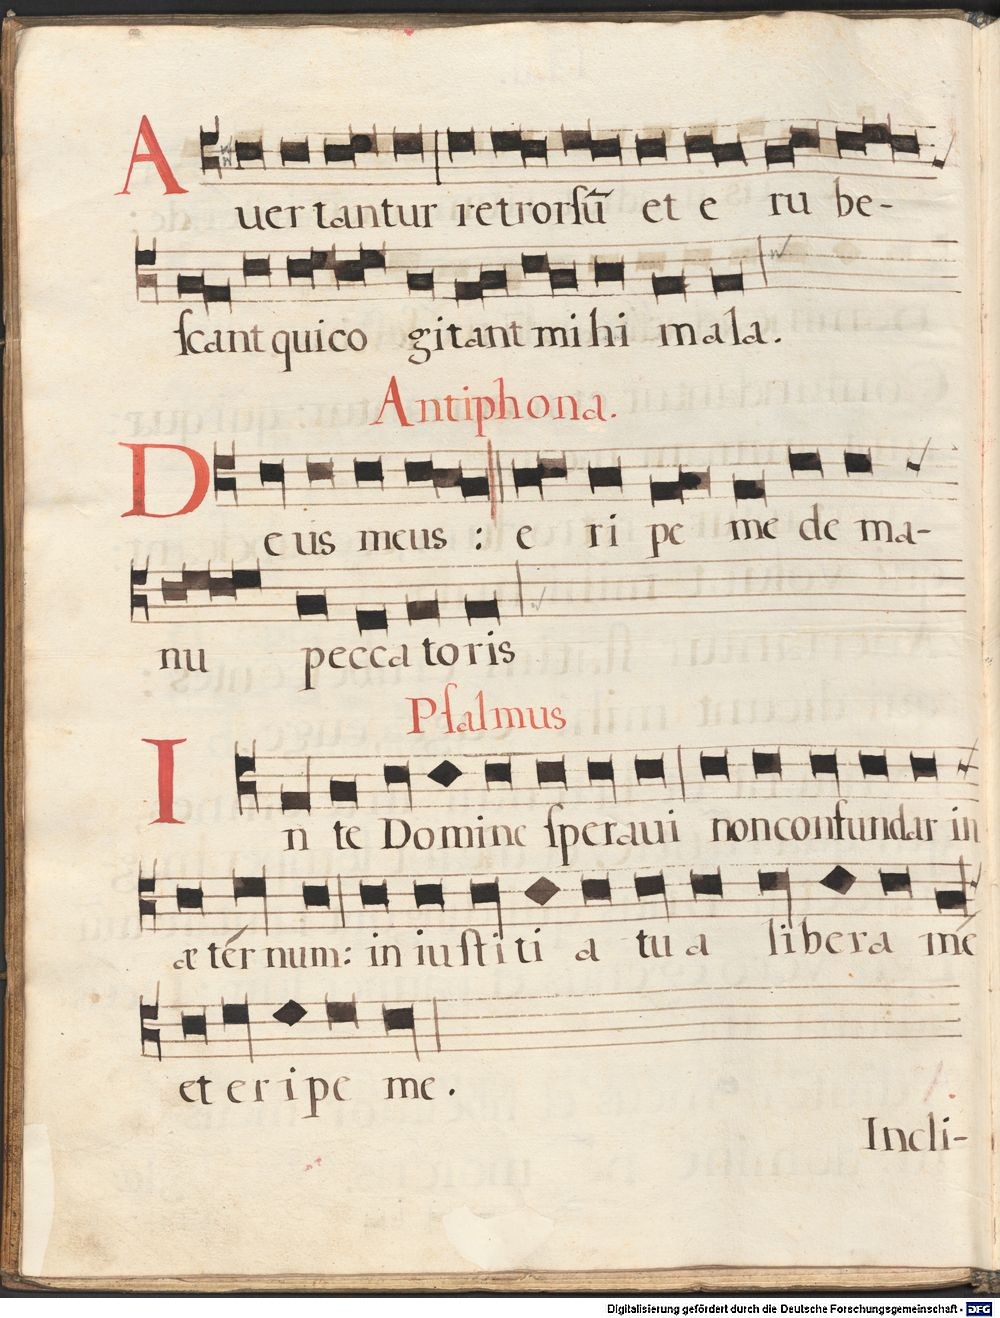 Auertantur retrorsū et erube-
scant qui cogitant mihi mala.
Antiphona.
Deus meus: eripe me de ma-
nu peccatoris
Psalmus
In te Domine speraui non confundar in
ætérnum: in iustitia tua libera mé
et eripe me.
Incli-
Digitalisierung gefördert durch die Deutsche Forschungsgemeinschaft - DFG